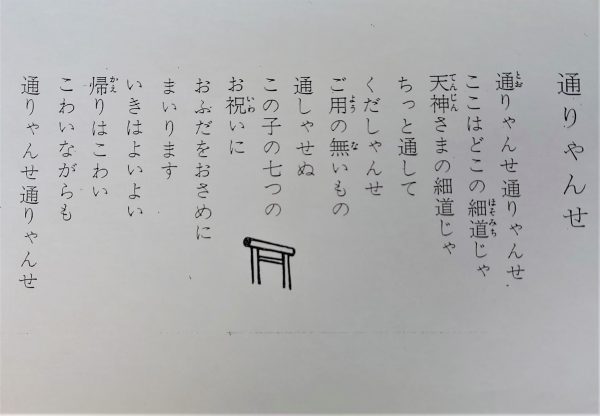 通りゃんせ
通りゃんせ通りゃんせ
ここはどこの細道じゃ
天神さまの細道じゃ
ちっと通して
くだしゃんせ
ご用の無いもの
通しゃせぬ
この子の七つの
お祝いに
おふだをおさめに
まいります
いきはよいよい
帰りはこわい
こわいながらも
通りゃんせ通りゃんせ